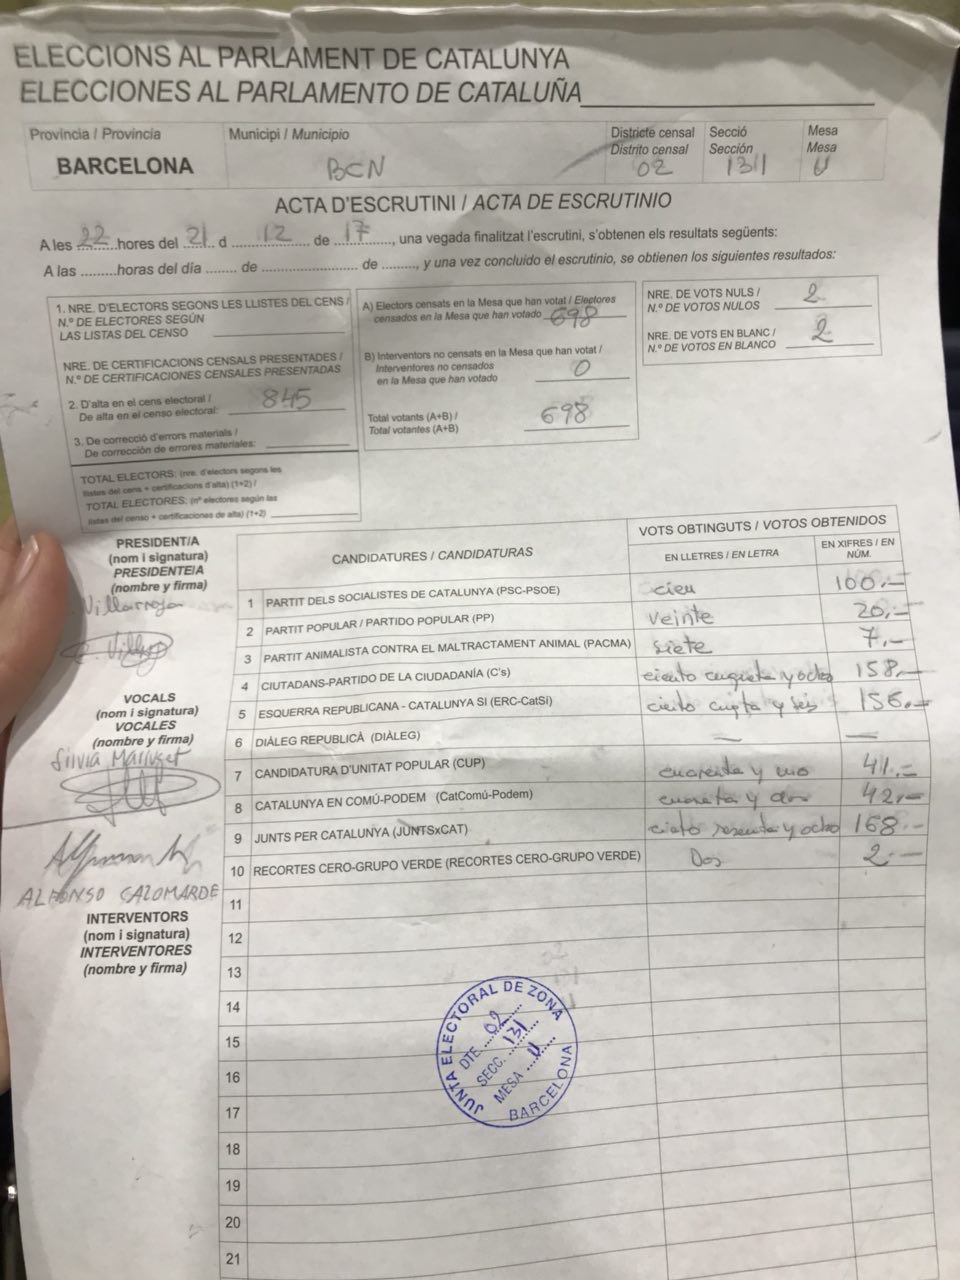 ELECCIONS AL PARLAMENT DE CATALUNYA
ELECCIONES AL PARLAMENTO DE CATALUÑA
Provincia / Provincia
BARCELONA
Municipi / Municipio
BCN
Districte censal
Distrito censal
02
Secció
Sección
131
Mesa
Mesa
U
ACTA D'ESCRUTINI / ACTA DE ESCRUTINIO
A les 22 hores del 21 d 12 de 17, una vegada finalitzat l'escrutini, s'obtenen els resultats següents:
A las ......... horas del día ........ de ........................ de ........, y una vez concluido el escrutinio, se obtienen los siguientes resultados:
1. NRE. D'ELECTORS SEGONS LES LLISTES DEL CENS /
N.º DE ELECTORES SEGÚN
LAS LISTAS DEL CENSO
NRE. DE CERTIFICACIONS CENSALS PRESENTADES /
N.º DE CERTIFICACIONES CENSALES PRESENTADAS
2. D'alta en el cens electoral /
De alta en el censo electoral: 845
3. De correcció d'errors materials /
De corrección de errores materiales:
TOTAL ELECTORS: (nre. d'electors segons les
llistes del cens + certificacions d'alta) (1+2) /
TOTAL ELECTORES: (nº electores según las
listas del censo + certificaciones de alta) (1+2)
A) Electors censats en la Mesa que han votat / Electores
censados en la Mesa que han votado 698
B) Interventors no censats en la Mesa que han votat /
Interventores no censados
en la Mesa que han votado 0
Total votants (A+B) /
Total votantes (A+B) 698
NRE. DE VOTS NULS /
N.º DE VOTOS NULOS 2
NRE. DE VOTS EN BLANC /
N.º DE VOTOS EN BLANCO 2
PRESIDENT/A
(nom i signatura)
PRESIDENTE/A
(nombre y firma)
Villarroja
VOCALS
(nom i signatura)
VOCALES
(nombre y firma)
Silvia
ALFONSO CALOMARDE
INTERVENTORS
(nom i signatura)
INTERVENTORES
(nombre y firma)
CANDIDATURES / CANDIDATURAS
VOTS OBTINGUTS / VOTOS OBTENIDOS
EN LLETRES / EN LETRA
EN XIFRES / EN NÚM.
1 PARTIT DELS SOCIALISTES DE CATALUNYA (PSC-PSOE) cien 100.-
2 PARTIT POPULAR / PARTIDO POPULAR (PP) veinte 20,-
3 PARTIT ANIMALISTA CONTRA EL MALTRACTAMENT ANIMAL (PACMA) siete 7,-
4 CIUTADANS-PARTIDO DE LA CIUDADANÍA (C's) ciento y ocho 158.-
5 ESQUERRA REPUBLICANA - CATALUNYA SI (ERC-CatSí) ciento y seis 156.-
6 DIÀLEG REPUBLICÀ (DIÀLEG) — —
7 CANDIDATURA D'UNITAT POPULAR (CUP) cuarenta y uno 41.-
8 CATALUNYA EN COMÚ-PODEM (CatComú-Podem) y dos 42.-
9 JUNTS PER CATALUNYA (JUNTSxCAT) y ocho 168.-
10 RECORTES CERO-GRUPO VERDE (RECORTES CERO-GRUPO VERDE) Dos 2.-
11
12
13
14
15
16
17
18
19
20
21
JUNTA ELECTORAL DE ZONA
DTE. 02
SECC. 131
MESA U
BARCELONA